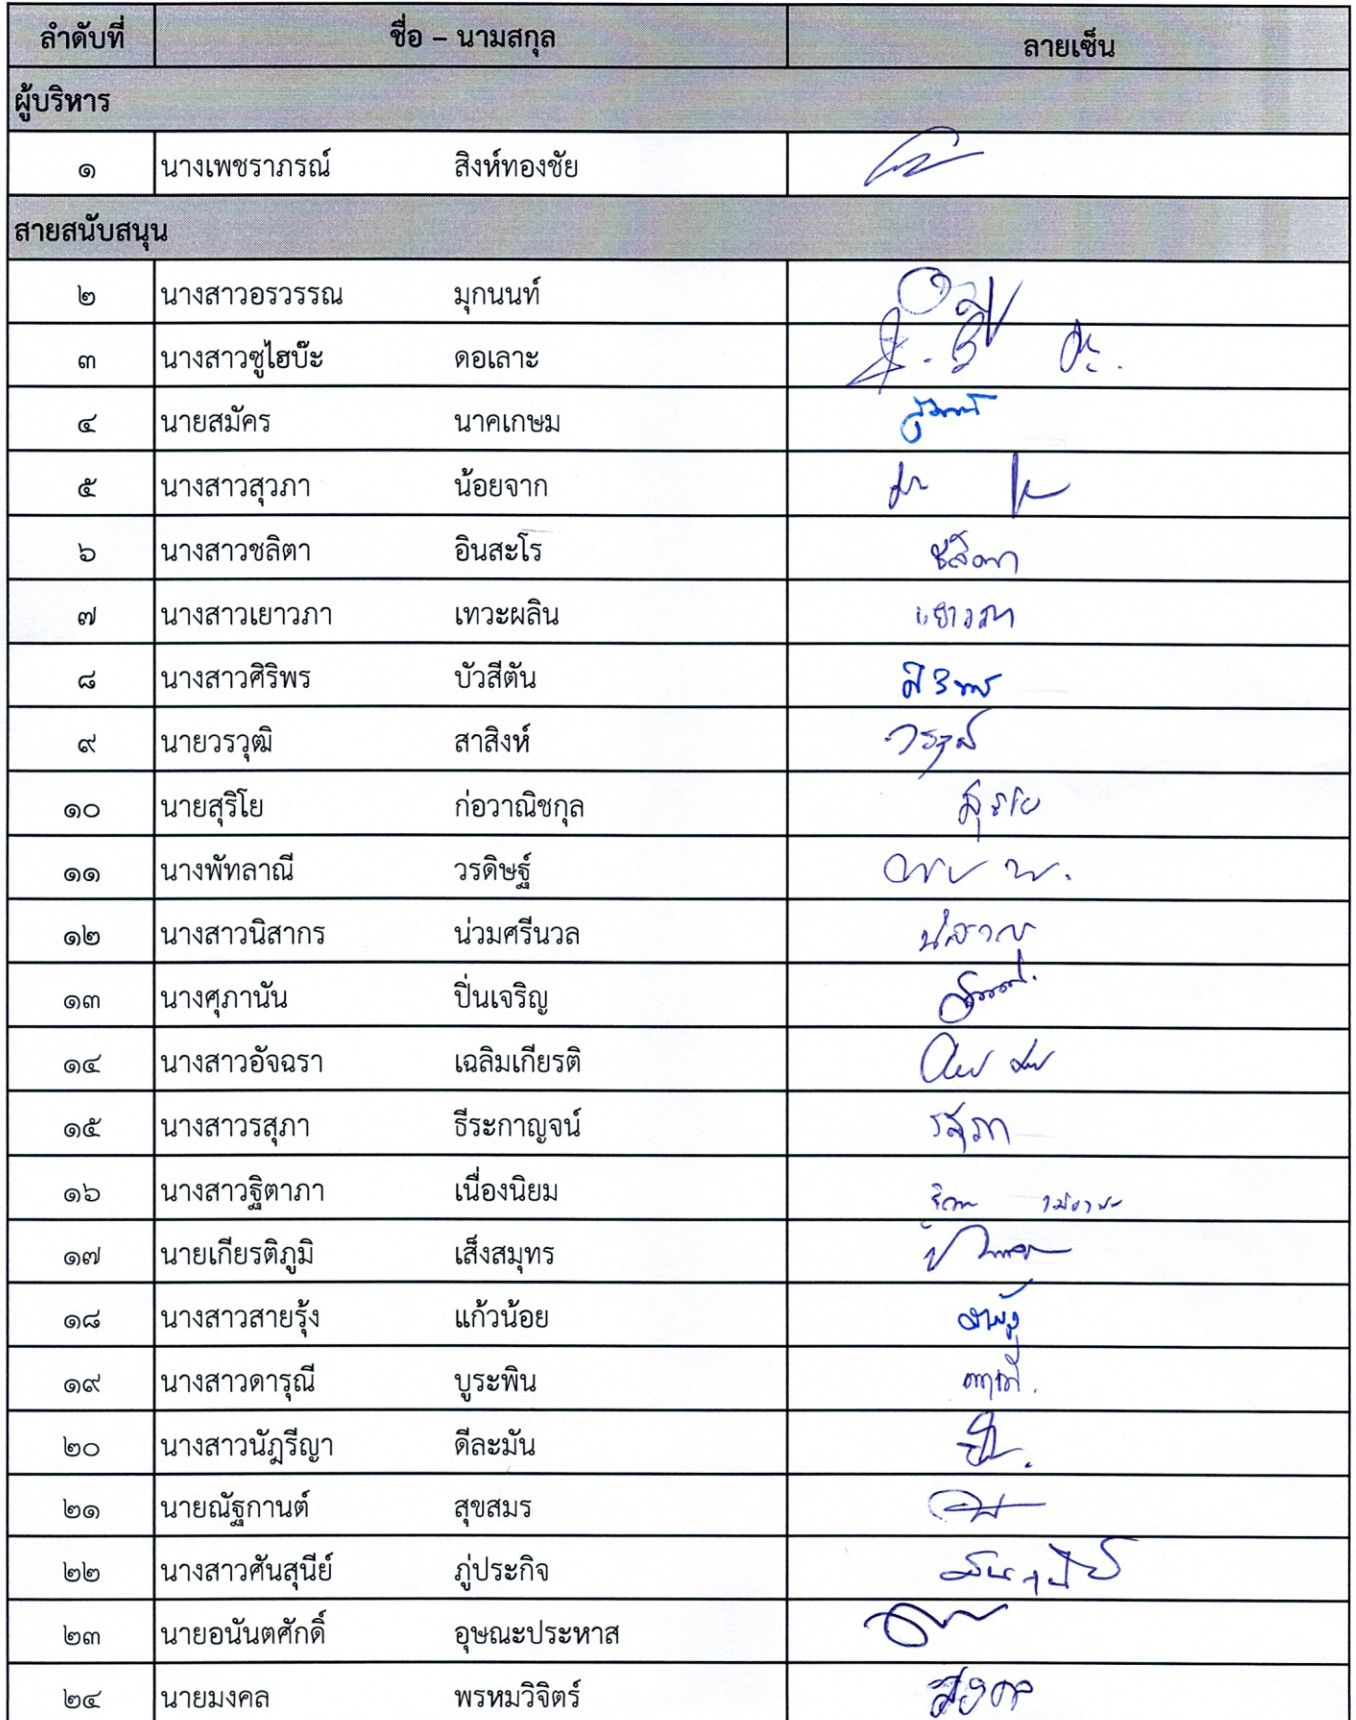 ลำดับที่ ชื่อ – นามสกุล ลายเซ็น
ผู้บริหาร
๑ นางเพชราภรณ์ สิงห์ทองชัย
สายสนับสนุน
๒ นางสาวอรวรรณ มุกนนท์
๓ นางสาวซูไฮบ๊ะ ดอเลาะ
๔ นายสมัคร นาคเกษม
๕ นางสาวสุวภา น้อยจาก
๖ นางสาวชลิตา อินสะโร ชลิตา
๗ นางสาวเยาวภา เทวะผลิน เยาวภา
๘ นางสาวศิริพร บัวสีตัน ศิริพร
๙ นายวรวุฒิ สาสิงห์
๑๐ นายสุริโย ก่อวาณิชกุล สุริโย
๑๑ นางพัทลาณี วรดิษฐ์
๑๒ นางสาวนิสากร น่วมศรีนวล
๑๓ นางศุภานัน ปิ่นเจริญ
๑๔ นางสาวอัจฉรา เฉลิมเกียรติ
๑๕ นางสาวรสุภา ธีระกาญจน์ รสุภา
๑๖ นางสาวฐิตาภา เนื่องนิยม
๑๗ นายเกียรติภูมิ เส็งสมุทร
๑๘ นางสาวสายรุ้ง แก้วน้อย สายรุ้ง
๑๙ นางสาวดารุณี บูระพิน
๒๐ นางสาวนัฎรีญา ดีละมัน
๒๑ นายณัฐกานต์ สุขสมร
๒๒ นางสาวศันสุนีย์ ภู่ประกิจ
๒๓ นายอนันตศักดิ์ อุษณะประหาส
๒๔ นายมงคล พรหมวิจิตร์ มงคล